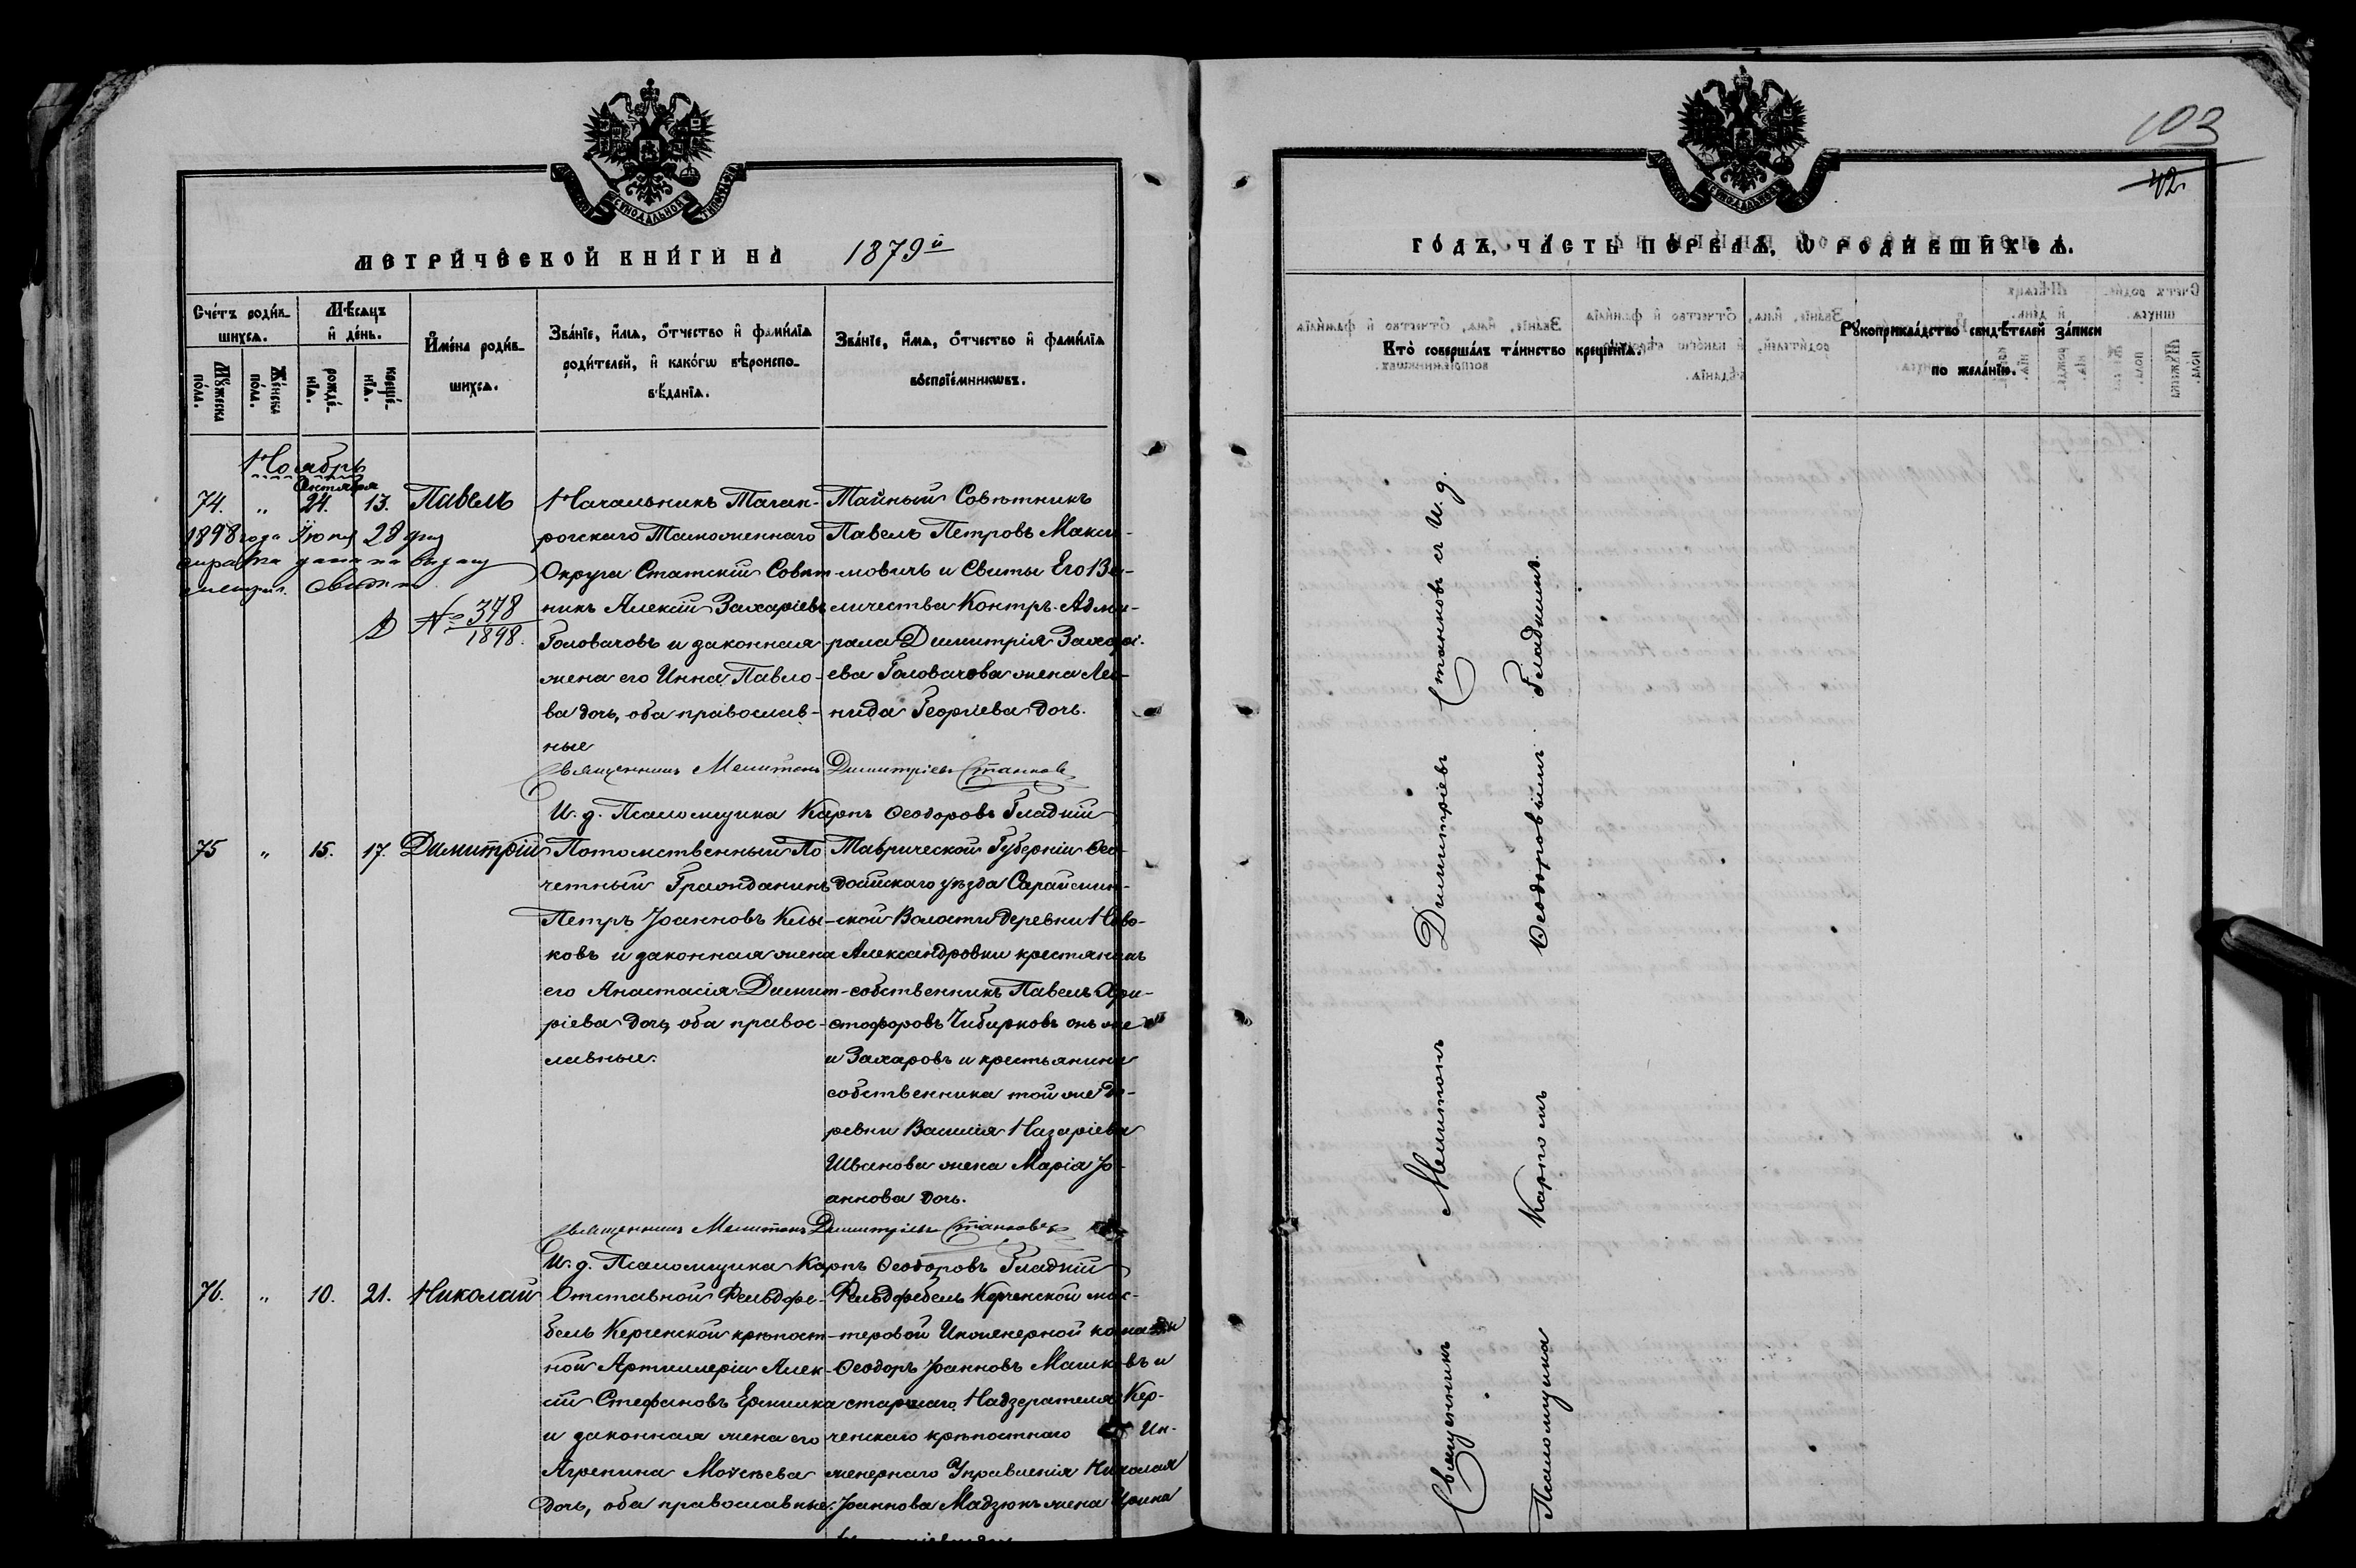 МЕТРИЧЕСКОЙ КНИГИ НА 1879й
Счетъ родив-
шихся.
Мѣсяцъ
и день.
Имена родив-
шихся.
Званіе, имя, отчество и фамилія
родителей, и какогѡ вѣроиспо-
вѣданія.
Званіе, имя, отчество и фамилія
воспріемникѡвъ.
Мꙋжеска
пола.
Женска
пола.
рожде-
нія.
креще-
нія.
Ноябрь
Октября
74. " 24. 13. Павелъ
1898 года Іюня 28 дня
дана на выдачу
№ 378
1898.
Начальникъ Таган-
рогскаго Таможеннаго
Округа Статскій Совѣт-
никъ Алексій Захаріевъ
Головачовъ и законная
жена его Инна Павло-
ва дочь, оба православ-
ные
Тайный Совѣтникъ
Павелъ Петровъ Макси-
мовичъ и Свиты Его Ве-
личества Контръ-Адми-
рала Димитрія Захарі-
ева Головачова жена Лео-
нида Георгіева дочь.
Священникъ Мелитонъ Димитріевъ Станковъ
И. д. Псаломщика Карпъ Ѳеодоровъ Гладкій
75 " 15. 17. Димитрій
Потомственный По
четный Гражданинъ
Петръ Іоанновъ Клы-
ковъ и законная жена
его Анастасія Димит-
ріева дочь, оба правос-
лавные.
Таврической Губерніи Ѳео-
досійскаго уѣзда Сараймин-
ской Волости деревни Ново-
Александровки крестянинъ
собственникъ Павелъ Хри-
стофоровъ Чибирковъ онъ же
и Захаровъ и крестьянина
собственника той же де-
ревни Василія Назаріева
Иванова жена Марія Іо-
аннова дочь.
Священникъ Мелитонъ Димитріевъ Станковъ
И. д. Псаломщика Карпъ Ѳеодоровъ Гладкій
76. " 10. 21. Николай
Отставной Фельдфе-
бель Керченской крѣпост-
ной Артиллеріи Алек-
сій Стефановъ Ермилка
и законная жена его
Агрепина Моѵсѣева
дочь, оба православные.
Фельдфебель Керченской мас-
теровой Инженерной команды
Ѳеодоръ Іоанновъ Машковъ и
старшаго Надзерателя Кер-
ченскаго крѣпостнаго Ин-
женернаго Управленія Николая
Іоаннова Мадзюкъ жена Ирина
103
42
ГОДЪ, ЧАСТЬ ПЕРВАЯ, Ѡ РОДИВШИХСЯ.
Кто совершалъ таинство крещенія.
Рꙋкоприкладство свидѣтелей записи
по желанію.
Священникъ Мелитонъ Димитріевъ Станковъ съ И. д.
Псаломщика Карпомъ Ѳеодоровымъ Гладкимъ.